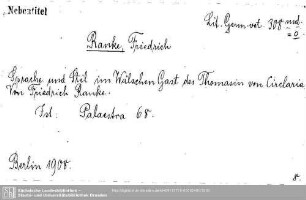 Nebentitel
Lit. Germ. vet. 308 med
= 0
Ranke, Friedrich
Sprache und Stil im Wälschen Gast des Thomasin von Circlaria
Von Friedrich Ranke.
Ist: Palaestra 68.
Berlin 1908.
8.